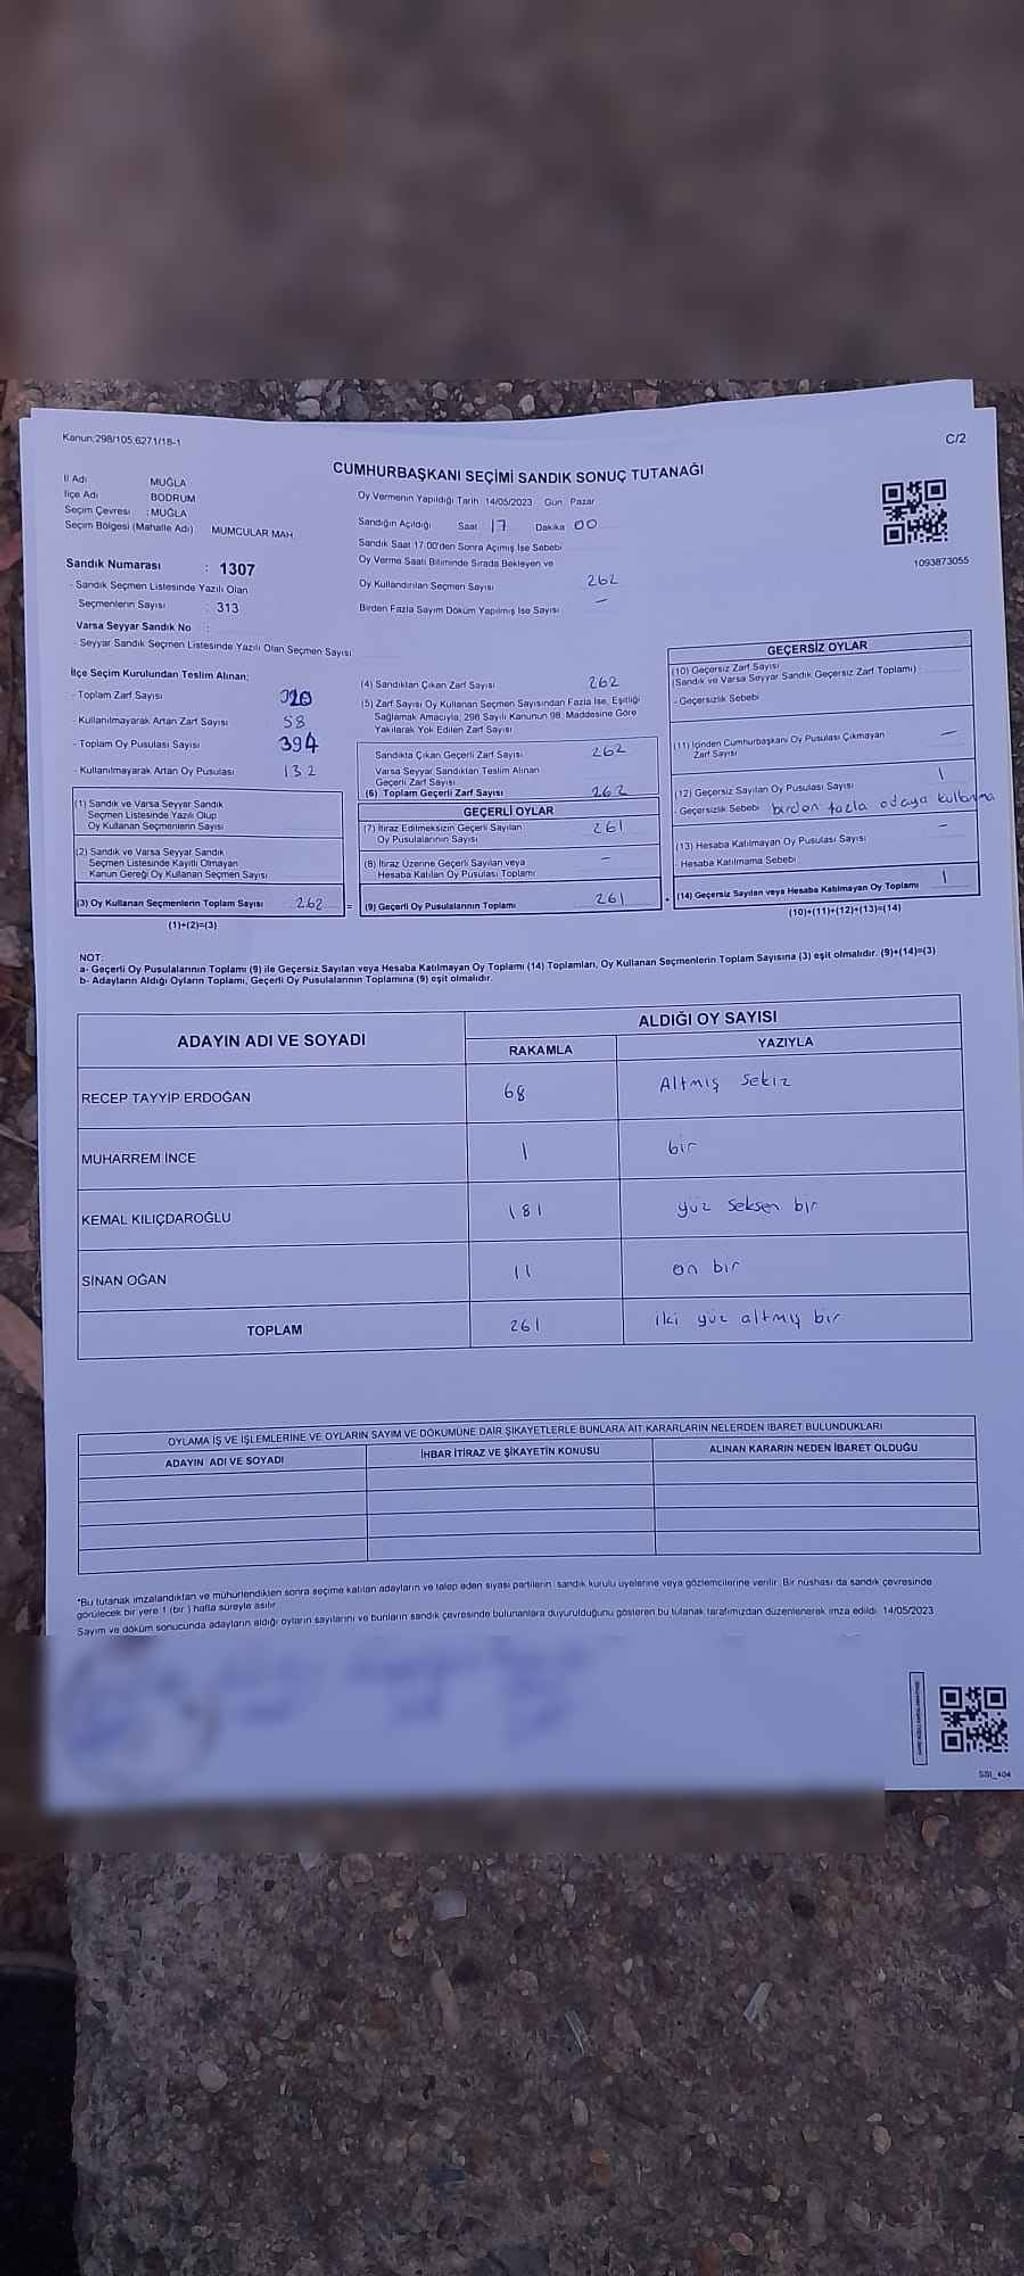 Kanun:298/105,6271/18-1
C/2
CUMHURBAŞKANI SEÇİMİ SANDIK SONUÇ TUTANAĞI
İl Adı MUĞLA
İlçe Adı BODRUM
Seçim Çevresi : MUĞLA
Seçim Bölgesi (Mahalle Adı) MUMCULAR MAH.
Sandık Numarası : 1307
- Sandık Seçmen Listesinde Yazılı Olan
Seçmenlerin Sayısı : 313
Varsa Seyyar Sandık No :
- Seyyar Sandık Seçmen Listesinde Yazılı Olan Seçmen Sayısı
Oy Vermenin Yapıldığı Tarih 14/05/2023 Gün Pazar
Sandığın Açıldığı Saat 17 Dakika 00
Sandık Saat 17.00'den Sonra Açılmış İse Sebebi
Oy Verme Saati Bitiminde Sırada Bekleyen ve
Oy Kullandırılan Seçmen Sayısı 262
Birden Fazla Sayım Döküm Yapılmış İse Sayısı –
1093873055
İlçe Seçim Kurulundan Teslim Alınan;
- Toplam Zarf Sayısı 320
- Kullanılmayarak Artan Zarf Sayısı 58
- Toplam Oy Pusulası Sayısı 394
- Kullanılmayarak Artan Oy Pusulası 132
(1) Sandık ve Varsa Seyyar Sandık
Seçmen Listesinde Yazılı Olup
Oy Kullanan Seçmenlerin Sayısı
(2) Sandık ve Varsa Seyyar Sandık
Seçmen Listesinde Kayıtlı Olmayan
Kanun Gereği Oy Kullanan Seçmen Sayısı
(3) Oy Kullanan Seçmenlerin Toplam Sayısı 262 =
(1)+(2)=(3)
(4) Sandıktan Çıkan Zarf Sayısı 262
(5) Zarf Sayısı Oy Kullanan Seçmen Sayısından Fazla İse, Eşitliği
Sağlamak Amacıyla, 298 Sayılı Kanunun 98. Maddesine Göre
Yakılarak Yok Edilen Zarf Sayısı
Sandıkta Çıkan Geçerli Zarf Sayısı 262
Varsa Seyyar Sandıktan Teslim Alınan
Geçerli Zarf Sayısı
(6) Toplam Geçerli Zarf Sayısı 262
GEÇERLİ OYLAR
(7) İtiraz Edilmeksizin Geçerli Sayılan
Oy Pusulalarının Sayısı 261
(8) İtiraz Üzerine Geçerli Sayılan veya
Hesaba Katılan Oy Pusulası Toplamı –
(9) Geçerli Oy Pusulalarının Toplamı 261 +
GEÇERSİZ OYLAR
(10) Geçersiz Zarf Sayısı
(Sandık ve Varsa Seyyar Sandık Geçersiz Zarf Toplamı)
- Geçersizlik Sebebi
(11) İçinden Cumhurbaşkanı Oy Pusulası Çıkmayan
Zarf Sayısı –
(12) Geçersiz Sayılan Oy Pusulası Sayısı 1
- Geçersizlik Sebebi birden fazla adaya kullanma
(13) Hesaba Katılmayan Oy Pusulası Sayısı –
- Hesaba Katılmama Sebebi
(14) Geçersiz Sayılan veya Hesaba Katılmayan Oy Toplamı 1
(10)+(11)+(12)+(13)=(14)
NOT:
a- Geçerli Oy Pusulalarının Toplamı (9) ile Geçersiz Sayılan veya Hesaba Katılmayan Oy Toplamı (14) Toplamları, Oy Kullanan Seçmenlerin Toplam Sayısına (3) eşit olmalıdır. (9)+(14)=(3)
b- Adayların Aldığı Oyların Toplamı, Geçerli Oy Pusulalarının Toplamına (9) eşit olmalıdır.
ADAYIN ADI VE SOYADI
ALDIĞI OY SAYISI
RAKAMLA YAZIYLA
RECEP TAYYİP ERDOĞAN 68 Altmış sekiz
MUHARREM İNCE 1 bir
KEMAL KILIÇDAROĞLU 181 yüz seksen bir
SİNAN OĞAN 11 on bir
TOPLAM 261 iki yüz altmış bir
OYLAMA İŞ VE İŞLEMLERİNE VE OYLARIN SAYIM VE DÖKÜMÜNE DAİR ŞİKAYETLERLE BUNLARA AİT KARARLARIN NELERDEN İBARET BULUNDUKLARI
ADAYIN ADI VE SOYADI İHBAR İTİRAZ VE ŞİKAYETİN KONUSU ALINAN KARARIN NEDEN İBARET OLDUĞU
*Bu tutanak imzalandıktan ve mühürlendikten sonra seçime katılan adayların ve talep eden siyasi partilerin sandık kurulu üyelerine veya gözlemcilerine verilir. Bir nüshası da sandık çevresinde
görülecek bir yere 1 (bir) hafta süreyle asılır.
Sayım ve döküm sonucunda adayların aldığı oyların sayılarını ve bunların sandık çevresinde bulunanlara duyurulduğunu gösteren bu tutanak tarafımızdan düzenlenerek imza edildi. 14/05/2023
SSI_404